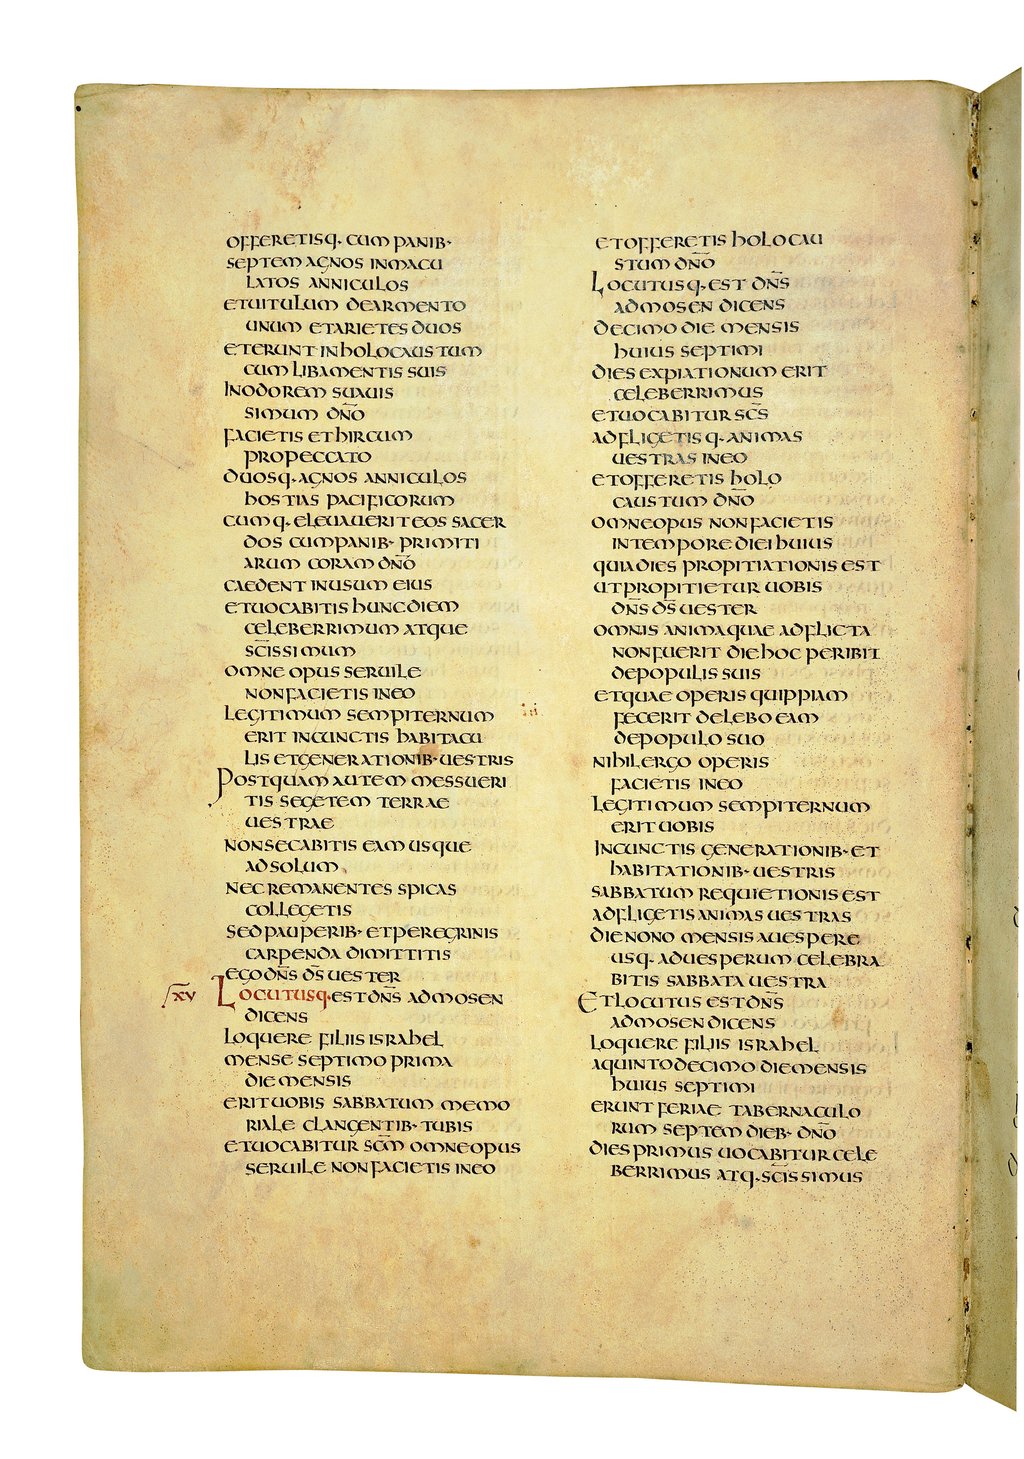 OFFERETISQ· CUM PANIB·
SEPTEM AGNOS INMACU
LATOS ANNICULOS
ET UITULUM DE ARMENTO
UNUM ET ARIETES DUOS
ET ERUNT IN HOLOCAUSTUM
CUM LIBAMENTIS SUIS
IN ODOREM SUAUIS
SIMUM DN̅O
FACIETIS ET HIRCUM
PRO PECCATO
DUOSQ· AGNOS ANNICULOS
HOSTIAS PACIFICORUM
CUMQ· ELEUAUERIT EOS SACER
DOS CUM PANIB· PRIMITI
ARUM CORAM DN̅O
CAEDENT IN USUM EIUS
ET UOCABITIS HUNC DIEM
CELEBERRIMUM ATQUE
SC̅ISSIMUM
OMNE OPUS SERUILE
NON FACIETIS IN EO
LEGITIMUM SEMPITERNUM
ERIT IN CUNCTIS HABITACU
LIS ET GENERATIONIB· UESTRIS
POSTQUAM AUTEM MESSUERI
TIS SEGETEM TERRAE
UESTRAE
NON SECABITIS EAM USQUE
AD SOLUM
NEC REMANENTES SPICAS
COLLEGETIS
SED PAUPERIB· ET PEREGRINIS
CARPENDA DIMITTITIS
EGO DN̅S D̅S UESTER
XV LOCUTUSQ· EST DN̅S AD MOSEN
DICENS
LOQUERE FILIIS ISRAHEL
MENSE SEPTIMO PRIMA
DIE MENSIS
ERIT UOBIS SABBATUM MEMO
RIALE CLANGENTIB· TUBIS
ET UOCABITUR SC̅M OMNE OPUS
SERUILE NON FACIETIS IN EO
ET OFFERETIS HOLOCAU
STUM DN̅O
LOCUTUSQ· EST DN̅S
AD MOSEN DICENS
DECIMO DIE MENSIS
HUIUS SEPTIMI
DIES EXPIATIONUM ERIT
CELEBERRIMUS
ET UOCABITUR SC̅S
ADFLIGETISQ· ANIMAS
UESTRAS IN EO
ET OFFERETIS HOLO
CAUSTUM DN̅O
OMNE OPUS NON FACIETIS
IN TEMPORE DIEI HUIUS
QUIA DIES PROPITIATIONIS EST
UT PROPITIETUR UOBIS
DN̅S D̅S UESTER
OMNIS ANIMA QUAE ADFLICTA
NON FUERIT DIE HOC PERIBIT
DE POPULIS SUIS
ET QUAE OPERIS QUIPPIAM
FECERIT DELEBO EAM
DE POPULO SUO
NIHIL ERGO OPERIS
FACIETIS IN EO
LEGITIMUM SEMPITERNUM
ERIT UOBIS
IN CUNCTIS GENERATIONIB· ET
HABITATIONIB· UESTRIS
SABBATUM REQUIETIONIS EST
ADFLIGETIS ANIMAS UESTRAS
DIE NONO MENSIS A UESPERE
USQ· AD UESPERUM CELEBRA
BITIS SABBATA UESTRA
ET LOCUTUS EST DN̅S
AD MOSEN DICENS
LOQUERE FILIIS ISRAHEL
A QUINTODECIMO DIE MENSIS
HUIUS SEPTIMI
ERUNT FERIAE TABERNACULO
RUM SEPTEM DIEB· DN̅O
DIES PRIMUS UOCABITUR CELE
BERRIMUS ATQ· SC̅ISSIMUS